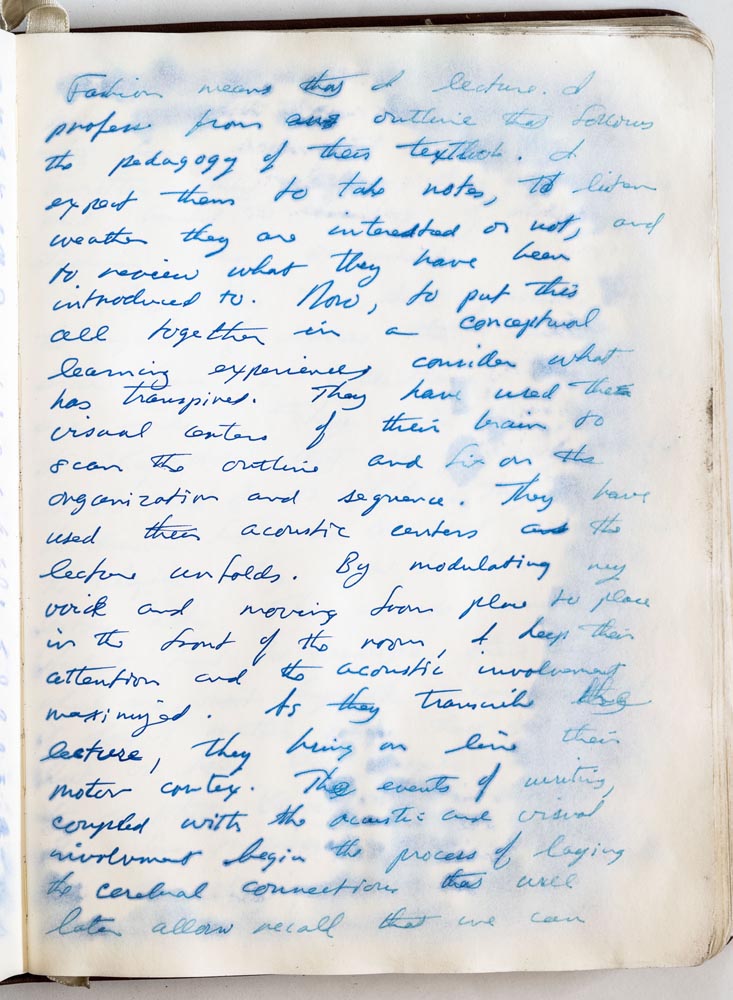 Fashion means that I lecture. I
profess from an outline that follows
the pedagogy of their textbook. I
expect them to take notes, to listen
weather they are interested or not, and
to review what they have been
introduced to. Now, to put this
all together in a conceptual
learning experience, consider what
has transpired. They have used the
visual centers of their brain to
scan the outline and fix on the
organization and sequence. They have
used their acoustic centers as the
lecture unfolds. By modulating my
voice and moving from place to place
in the front of the room, I keep their
attention and the acoustic involvement
maximized. As they transcribe the
lecture, they bring on line their
motor cortex. The events of writing,
coupled with the acoustic and visual
involvment begin the process of laying
the cerebral connections that will
later allow recall that we can